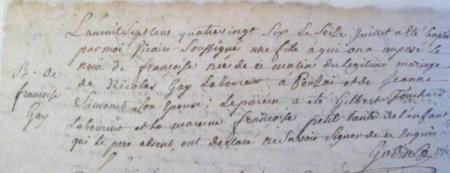 L'an mil sept cens quatre vingt six le seize juillet a été baptisé
par moi vicaire soussigné une fille a qui on a imposé le
nom de francoise née de ce matin du legitime mariage
B. de francoise Gay
de Nicolas Gay Laboureur a et de Jeanne
Simonet son epouse ; Le parein a été Gilbert Touchard
Laboureur et la mareine francoise petit tante de l'enfant
qui le pere absent, ont declaré ne savoir signer de ce enquis
Godin